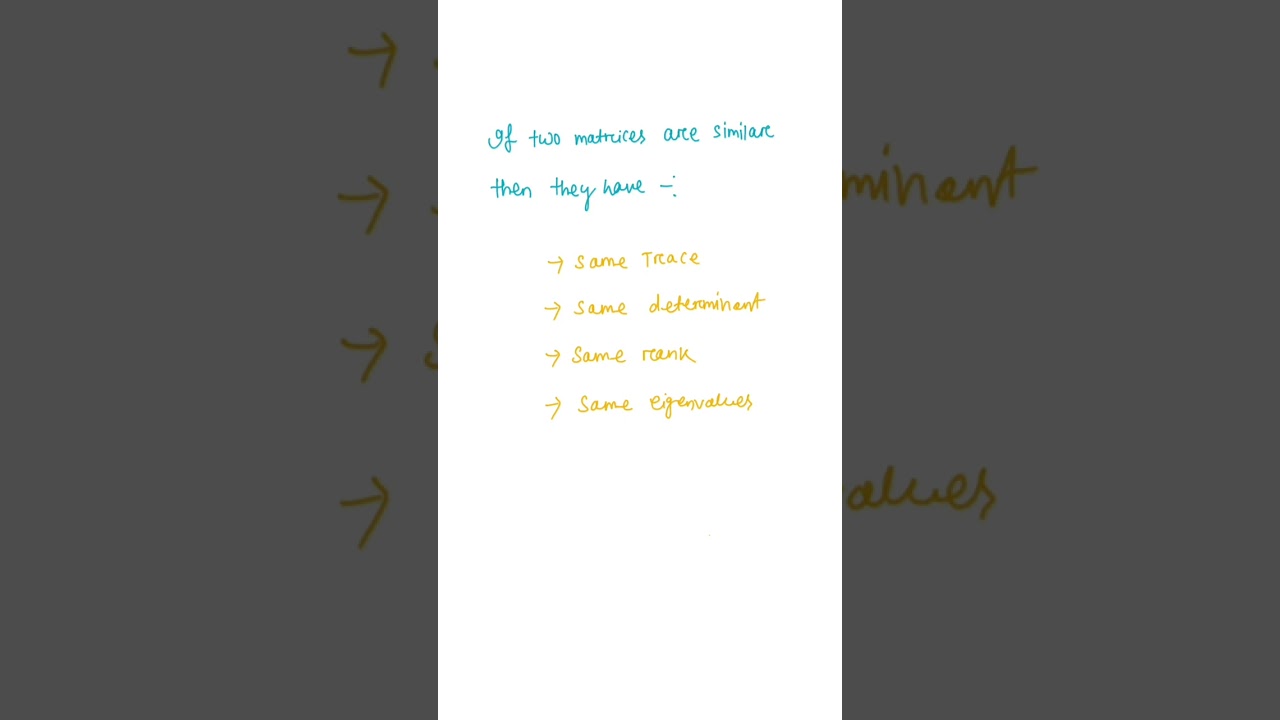 If two matrices are similar
then they have -:
→ same Trace
→ same determinant
→ same rank
→ same eigenvalues